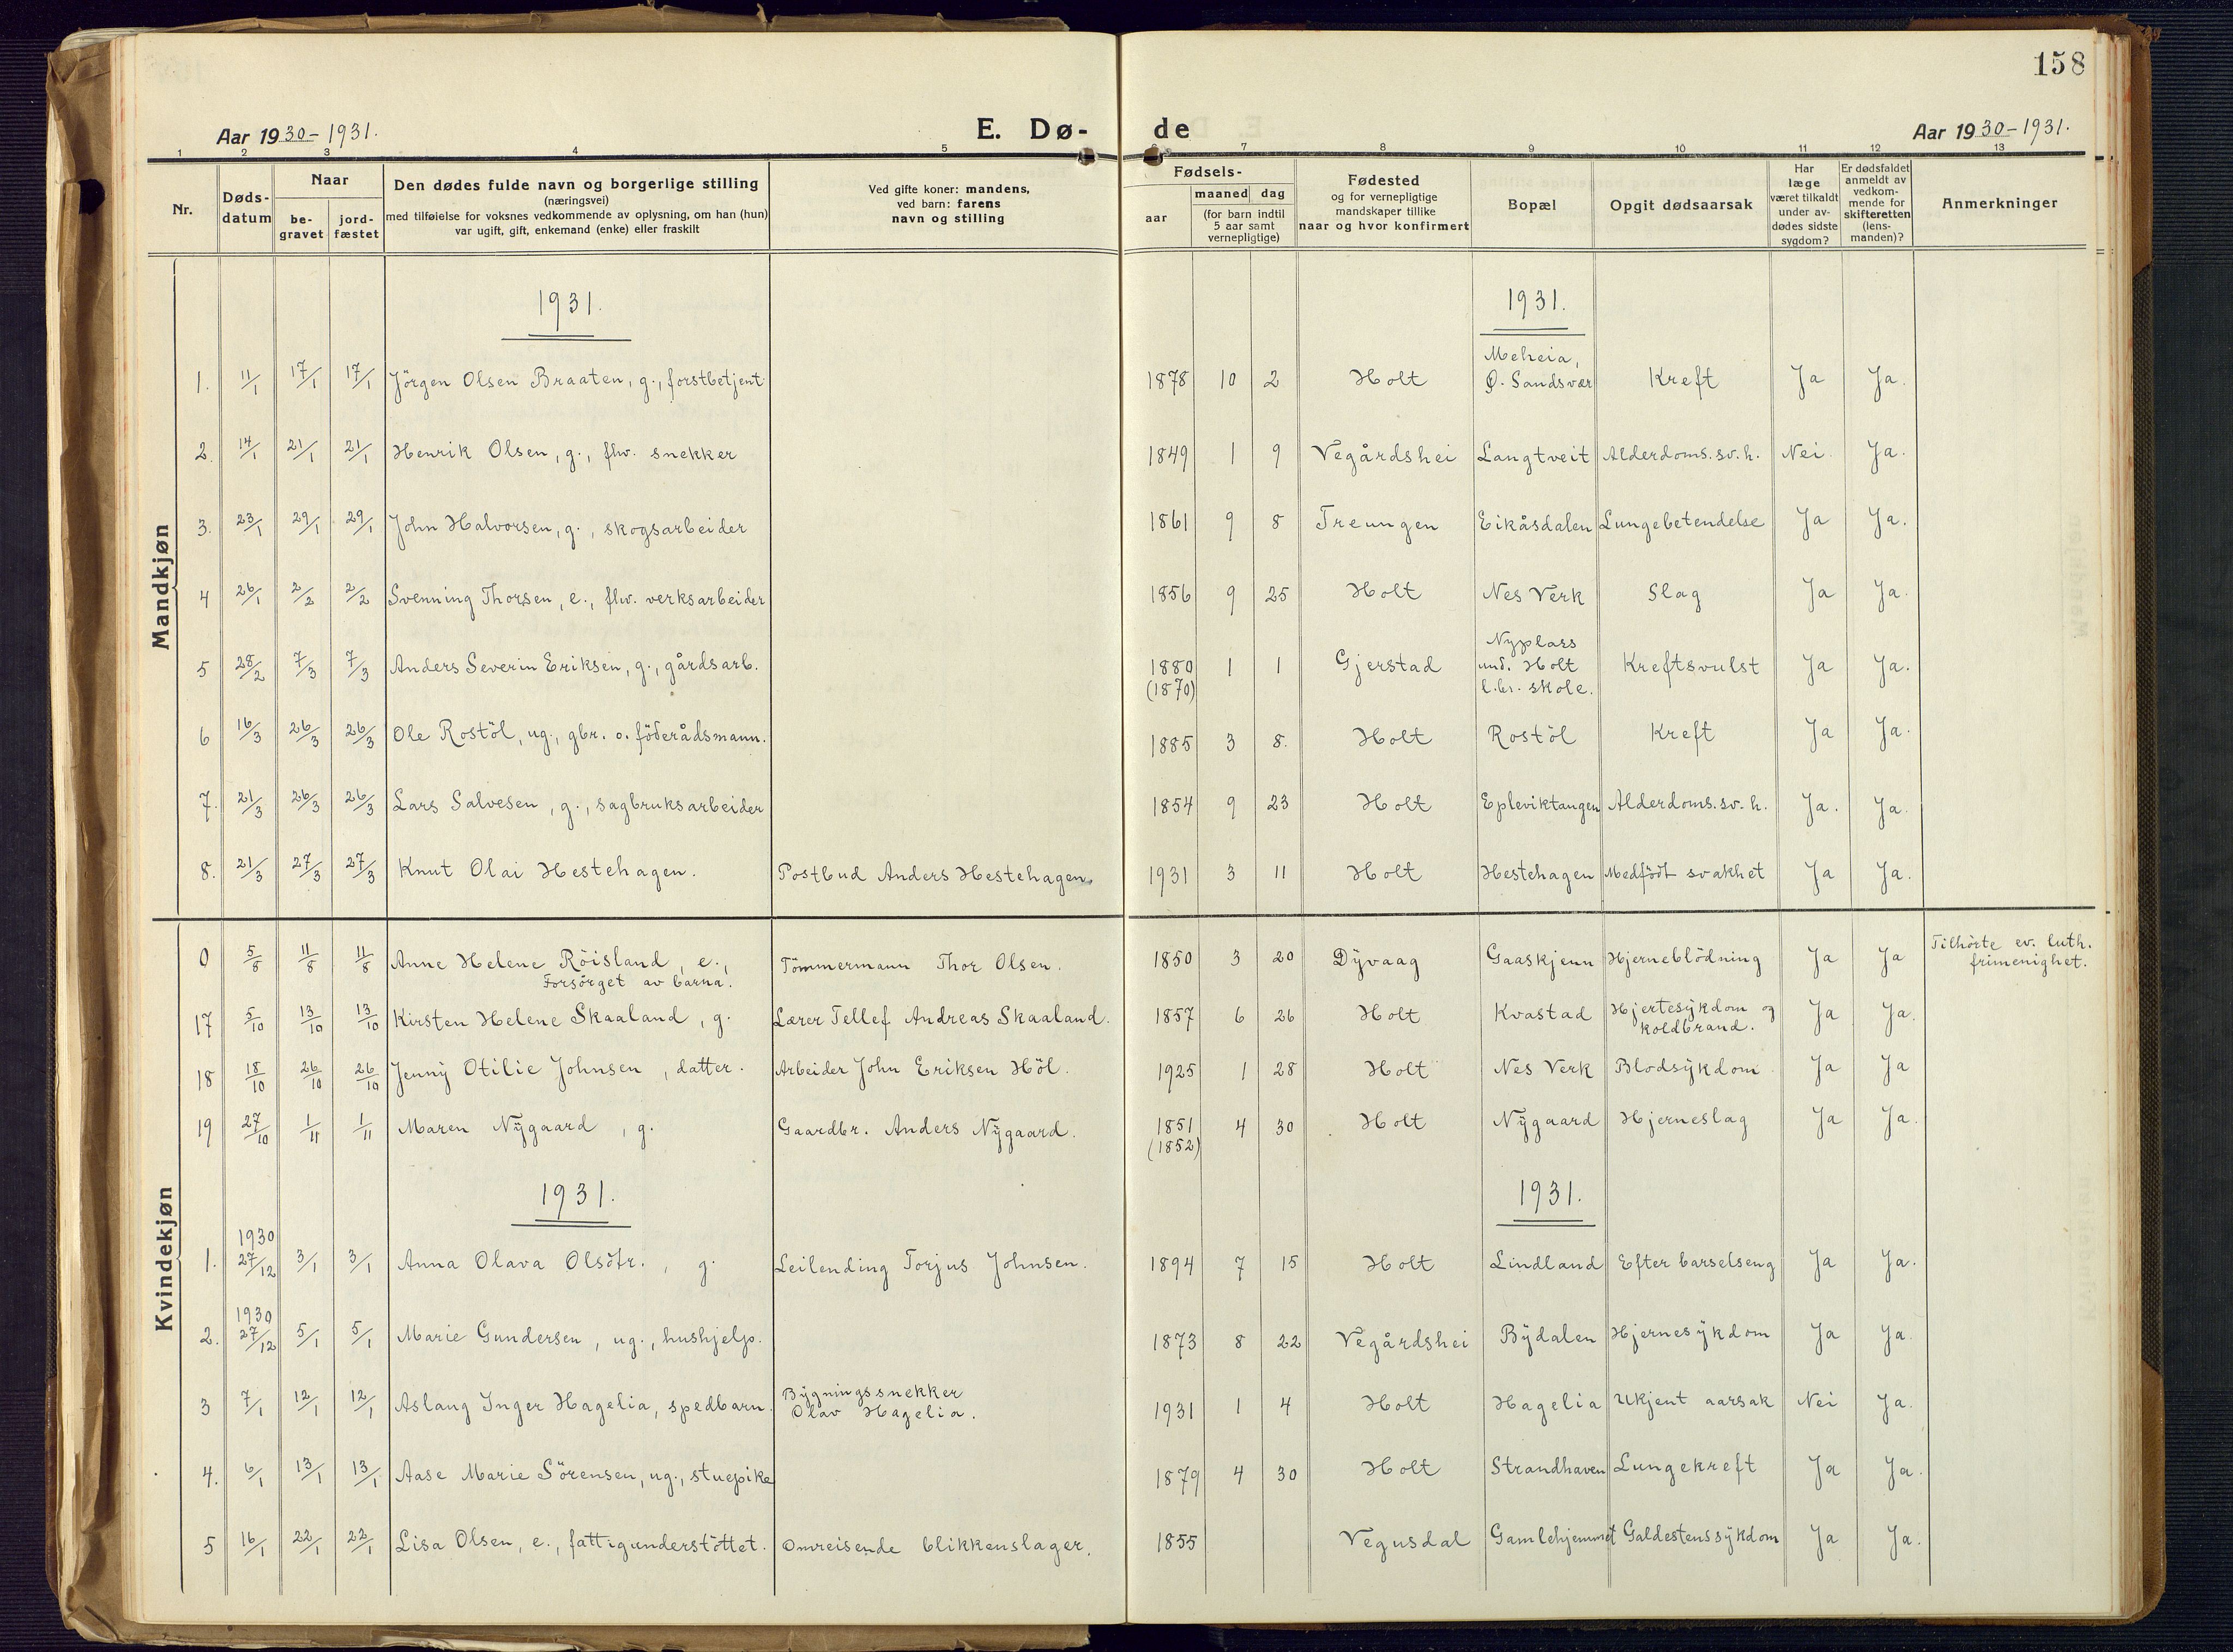 158
Aar 1930-1931.
E. Dø-
de
Aar 1930-1931.
1 2 3 4 5 7 8 9 10 11 12 13
Nr.
Døds-
datum
Naar
be-
gravet
jord-
fæstet
Den dødes fulde navn og borgerlige stilling
(næringsvei)
med tilføielse for voksnes vedkommende av oplysning, om han (hun)
var ugift, gift, enkemand (enke) eller fraskilt
Ved gifte koner: mandens,
ved barn: farens
navn og stilling
Fødsels-
aar
maaned dag
(for barn indtil
5 aar samt
vernepligtige)
Fødested
og for vernepligtige
mandskaper tillike
naar og hvor konfirmert
Bopæl
Opgit dødsaarsak
Har
læge
været tilkaldt
under av-
dødes sidste
sygdom?
Er dødsfaldet
anmeldt av
vedkom-
mende for
skifteretten
(lens-
manden)?
Anmerkninger
Mandkjøn
1931. 1931.
Meheia,
1. 11/1 17/1 17/1 Jörgen Olsen Braaten, g., forstbetjent 1878 10 2 Holt Ø. Sandsvær Kreft Ja Ja.
2. 14/1 21/1 21/1 Henrik Olsen, g., fhv. snekker 1849 1 9 Vegårdshei Langtveit Alderdoms.sv.h. Nei. Ja.
3. 23/1 29/1 29/1 John Halvorsen, g., skogsarbeider 1861 9 8 Treungen Eikåsdalen Lungebetendelse Ja Ja.
4 26/1 2/2 2/2 Svenning Thorsen, e., fhv. verksarbeider 1856 9 25 Holt Nes Verk Slag Ja Ja.
Nyplass
5 28/2 7/3 7/3 Anders Severin Eriksen, g., gårdsarb. 1880 1 1 Gjerstad und. Holt Kreftsvulst Ja Ja.
(1870) l.br. skole.
6 16/3 26/3 26/3 Ole Rostöl, ug., gbr. o. föderådsmann. 1885 3 8. Holt Rostöl Kreft Ja Ja.
7. 21/3 26/3 26/3 Lars Salvesen, g., sagbruksarbeider 1854 9 23 Holt Epleviktangen Alderdoms.sv.h. Ja. Ja.
8. 21/3 27/3 27/3 Knut Olai Hestehagen. Postbud Anders Hestehagen. 1931 3 11 Holt Hestehagen Medfödt svakhet Ja Ja.
Kvindekjøn
0 5/8 11/8 11/8 Anne Helene Röisland, e., Tömmermann Thor Olsen. 1850 3 20 Dÿvaag Gaaskjenn Hjerneblödning Ja Ja Tilhörte ev. luth.
Forsörget av barna. frimenighet.
17 5/10 13/10 13/10 Kirsten Helene Skaaland, g. Lærer Tellef Andreas Skaaland. 1857 6 26 Holt Kvastad Hjertesÿkdom og Ja Ja.
koldbrand.
18 18/10 26/10 26/10 Jennÿ Otilie Johnsen, datter. Arbeider John Eriksen Höl. 1925 1 28 Holt Nes Verk Blodsÿkdom Ja Ja
19 27/10 1/11 1/11 Maren Nÿgaard, g. Gaardbr. Anders Nÿgaard. 1851 4 30 Holt Nÿgaard Hjerneslag Ja Ja.
(1852)
1931. 1931.
1930
1. 27/12 3/1 3/1 Anna Olava Olsdtr., g. Leilending Torjus Johnsen. 1894 7 15 Holt Lindland Efter barselseng Ja Ja.
1930
2. 27/12 5/1 5/1 Marie Gundersen, ug., hushjelp. 1873 8 22 Vegårdshei Bÿdalen Hjernesÿkdom Ja Ja.
Bÿgningssnekker
3 7/1 12/1 12/1 Aslaug Inger Hagelia, spedbarn. Olav Hagelia. 1931 1 4 Holt Hagelia Ukjent aarsak Nei Ja.
4. 6/1 13/1 13/1 Aase Marie Sörensen, ug., stuepike 1879 4 30 Holt Strandhaven Lungekreft Ja Ja.
5 16/1 22/1 22/1 Lisa Olsen, e., fattigunderstöttet. Omreisende blikkenslager. 1855 Vegusdal Gamlehjemmet Galdestenssÿkdom Ja Ja.